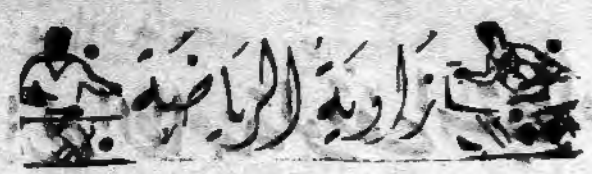 زَاوِيَةُ الرِّيَاضَة